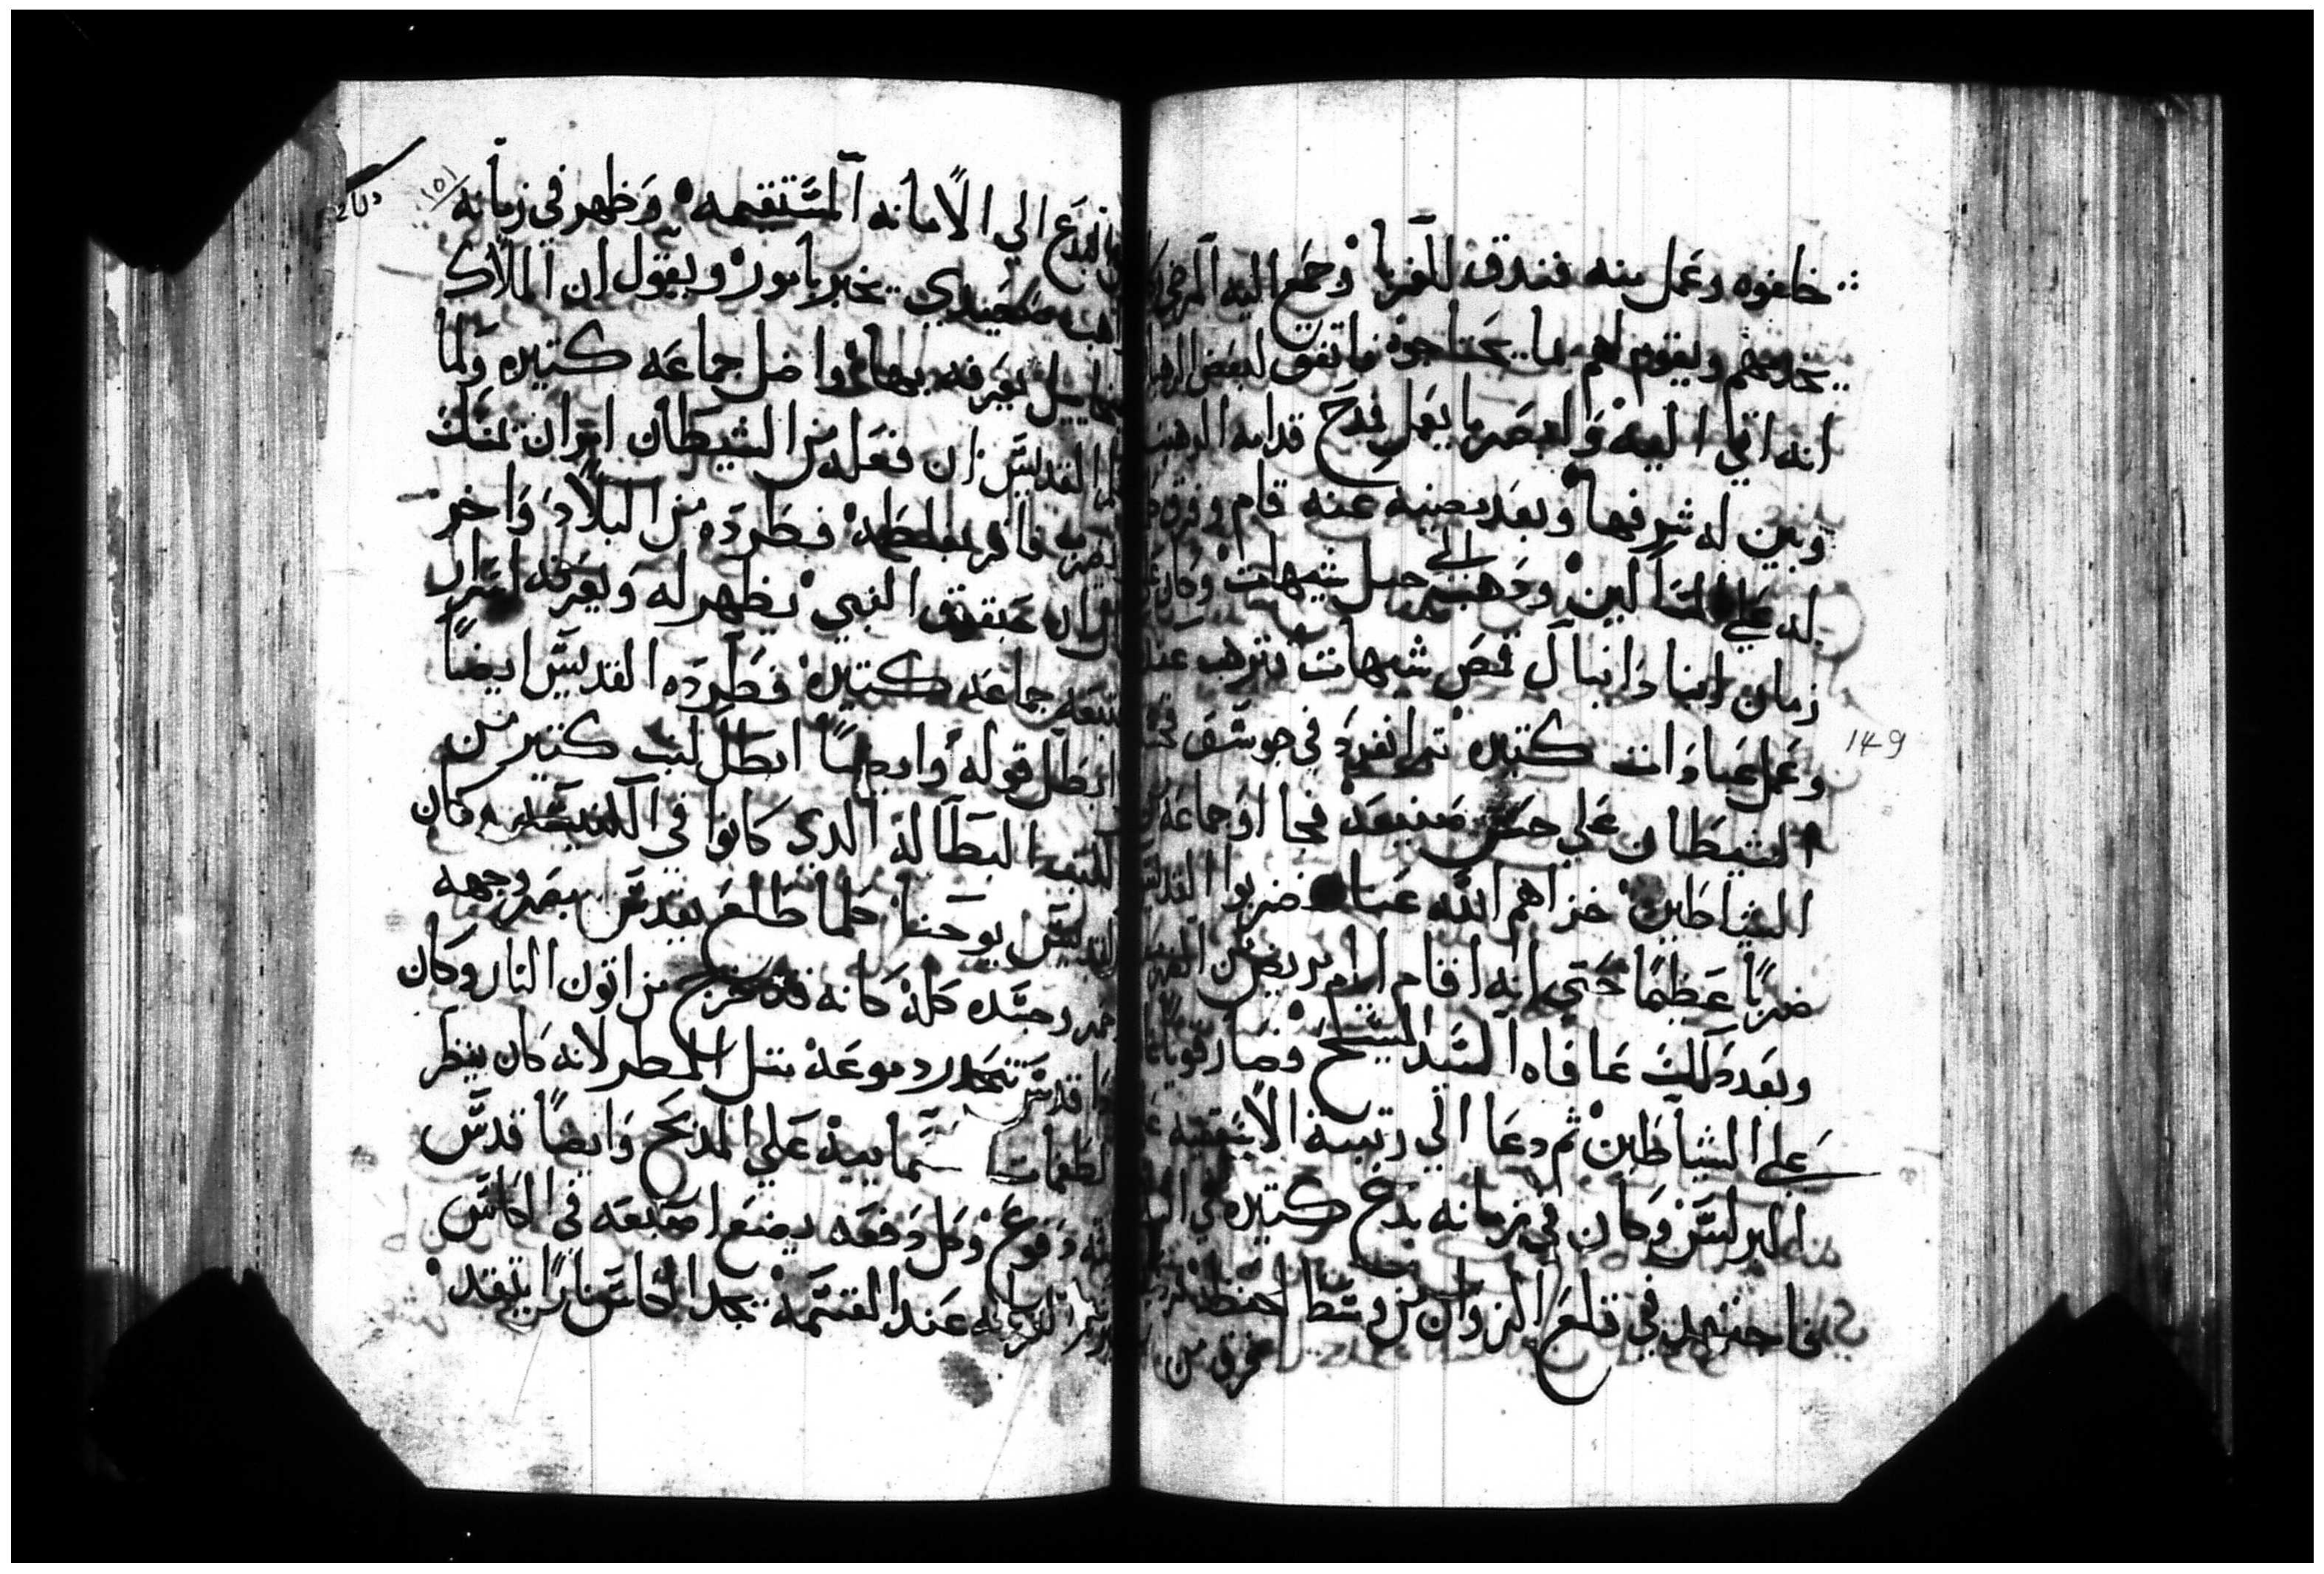 خلفوه وعمل منه فندق للغربا وجمع اليه المرضي
يخدمهم ويقوم لهم بما يحتاجوه فاتفق لبعض الرهبان
انه اتي اليه وابصر ما يعمل فمدح قدامه الرهبنه
وبين له شرفها وبعد مضيه عنه قام وفرق
له علي المساكين ودهب الي جبل شيهات وكان
زمان ابنا دانيال قمص شيهات فترهب عنده
وعمل عبادات كتيره تم انفرد في جوسق
الشيطان علي حسن صنيعه فجا او جماعه
الشياطين خزاهم الله عيانا ضربوا القديس
ضربًا عظيمًا حتي انه اقام ايام مريض من
وبعد دلك عافاه السيد المسيح وصار قويا
علي الشياطين ثم دعا الي رتبة الاسقفيه
البرلس وكان في زمانه بدع كتيره في
فاجتهد في قلع الزوان من وسط الحنطه
فرق من
149
البدع الي الامانه المستقيمه وظهر في زمانه ١٥١
صعيدي يخبر بامور ويقول ان الملاك
ميخاييل يعرفه بها واضل جماعه كتيره ولما
القديس ان فعله من الشيطان امر ان
فاقر فطرده من البلاد واخر
ان حبقوق النبي يظهر له ويعرفه اسرار
تبعه جماعه كتيره فطرده القديس ايضاً
ابطل قوله وايضاً ابطل كتب كتير من
الكتب البطاله الدي كانوا في الكنيسه وكان
القديس يوحنا كلما طلع يقدس يبصر وجهه
وجسده كله كانه قد خرج من اتون النار وكان
قدس تتحدر دموعه متل المطر لانه كان ينظر
الطغمات السماييه علي المدبح وايضاً قدس
دفوع وكل دفعه يضع اصبعه في الكاس
عند القسمه يجد الكاس نارًا يتقد